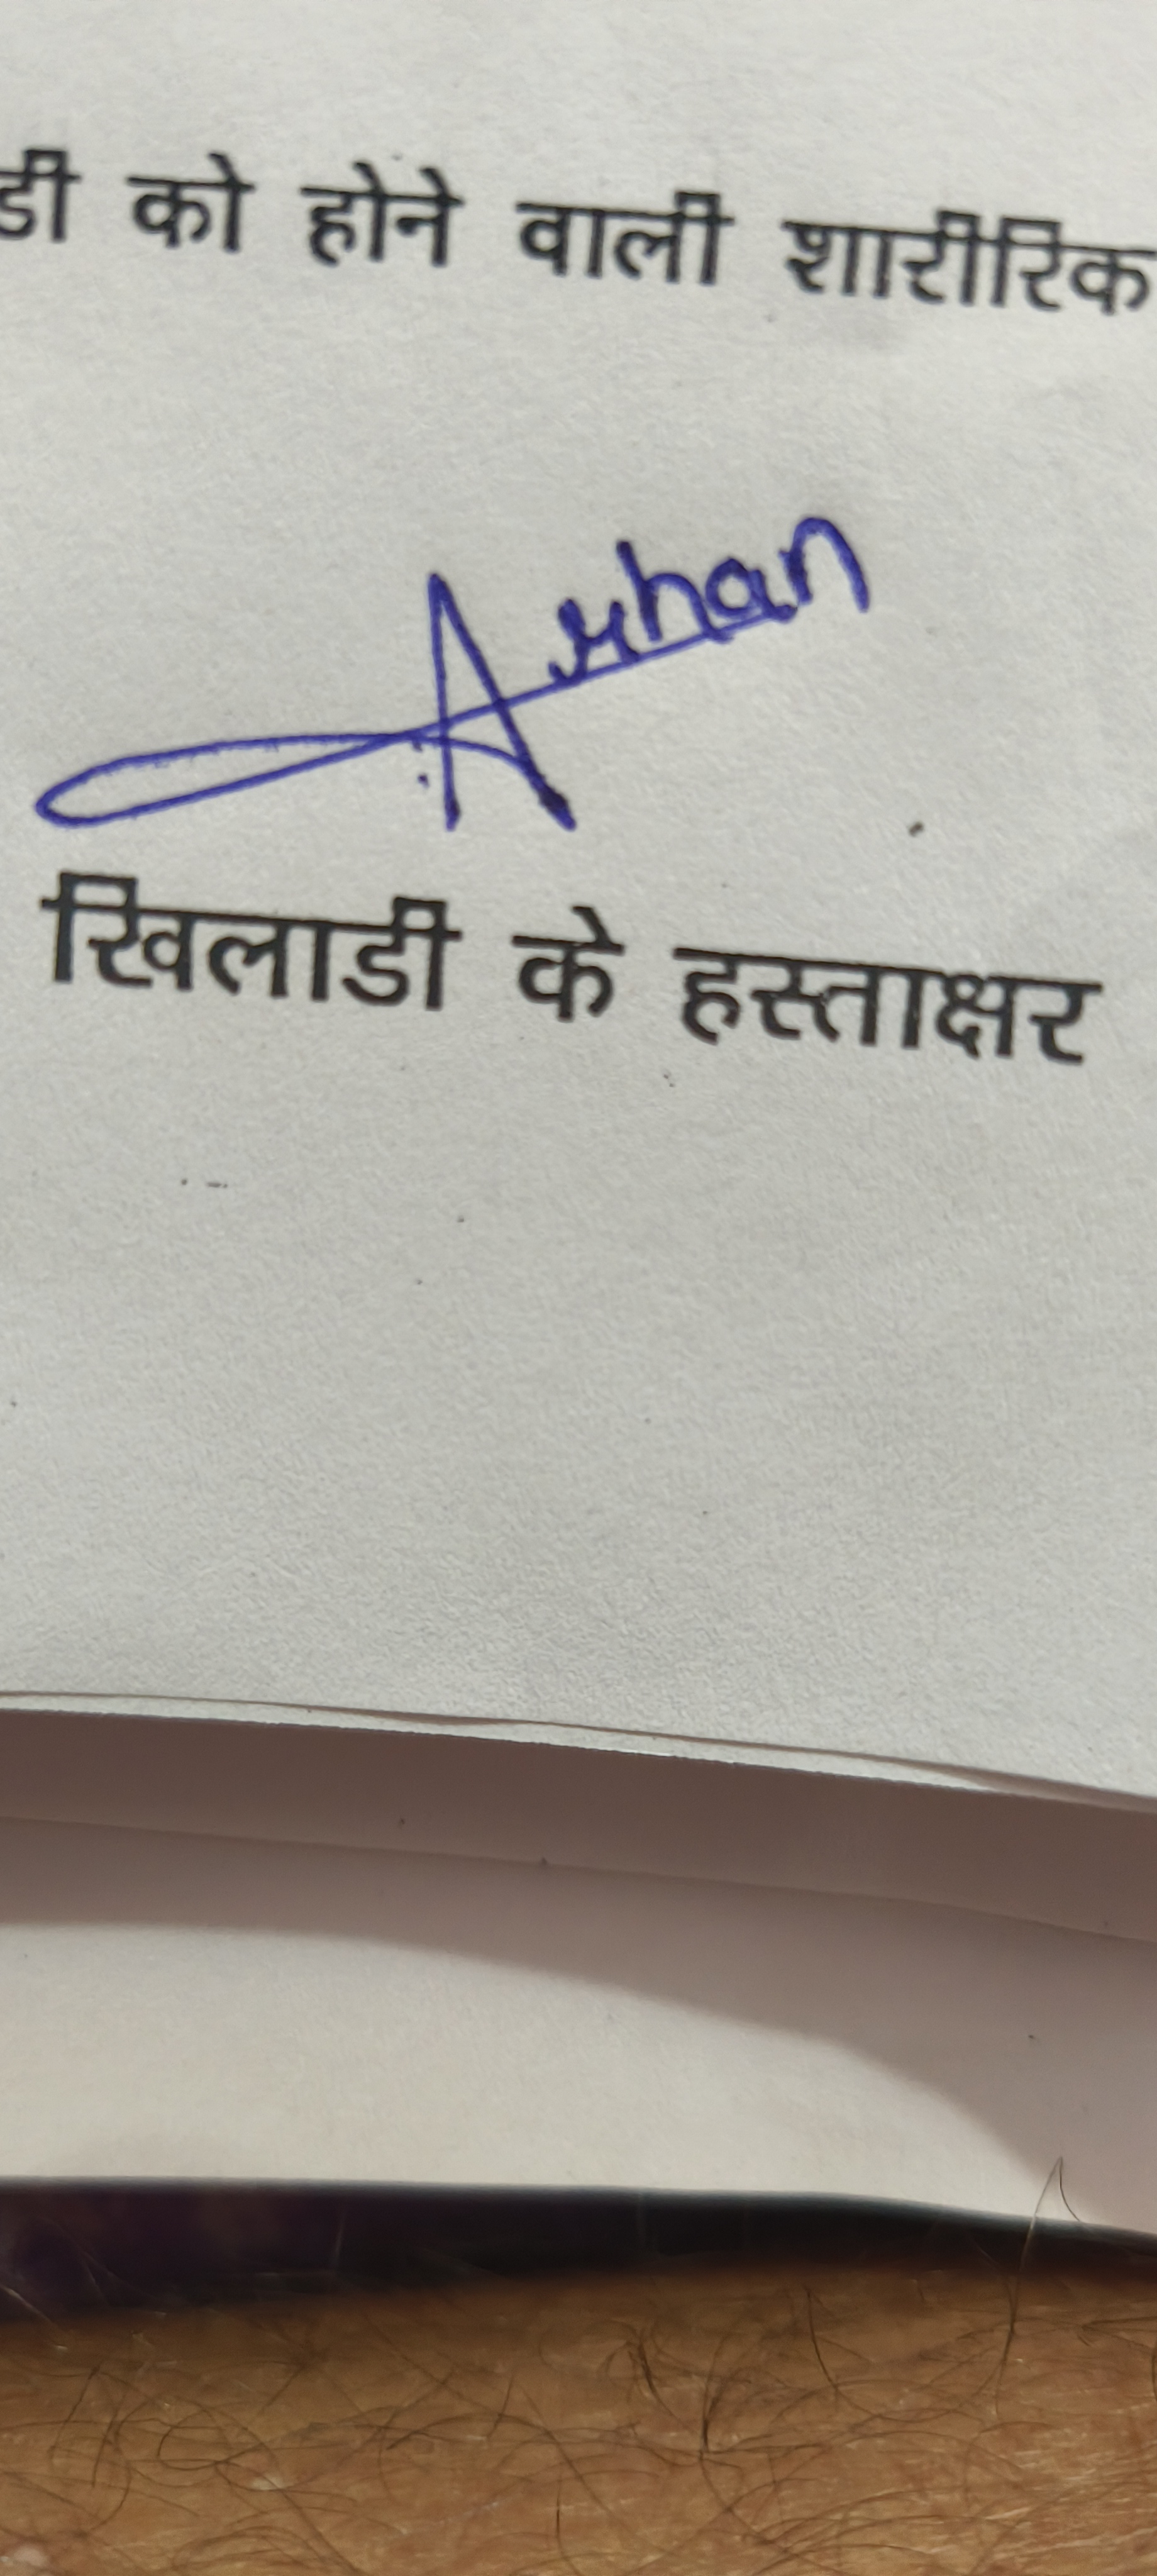 डी को होने वाली शारीरिक
Arhan
खिलाडी के हस्ताक्षर